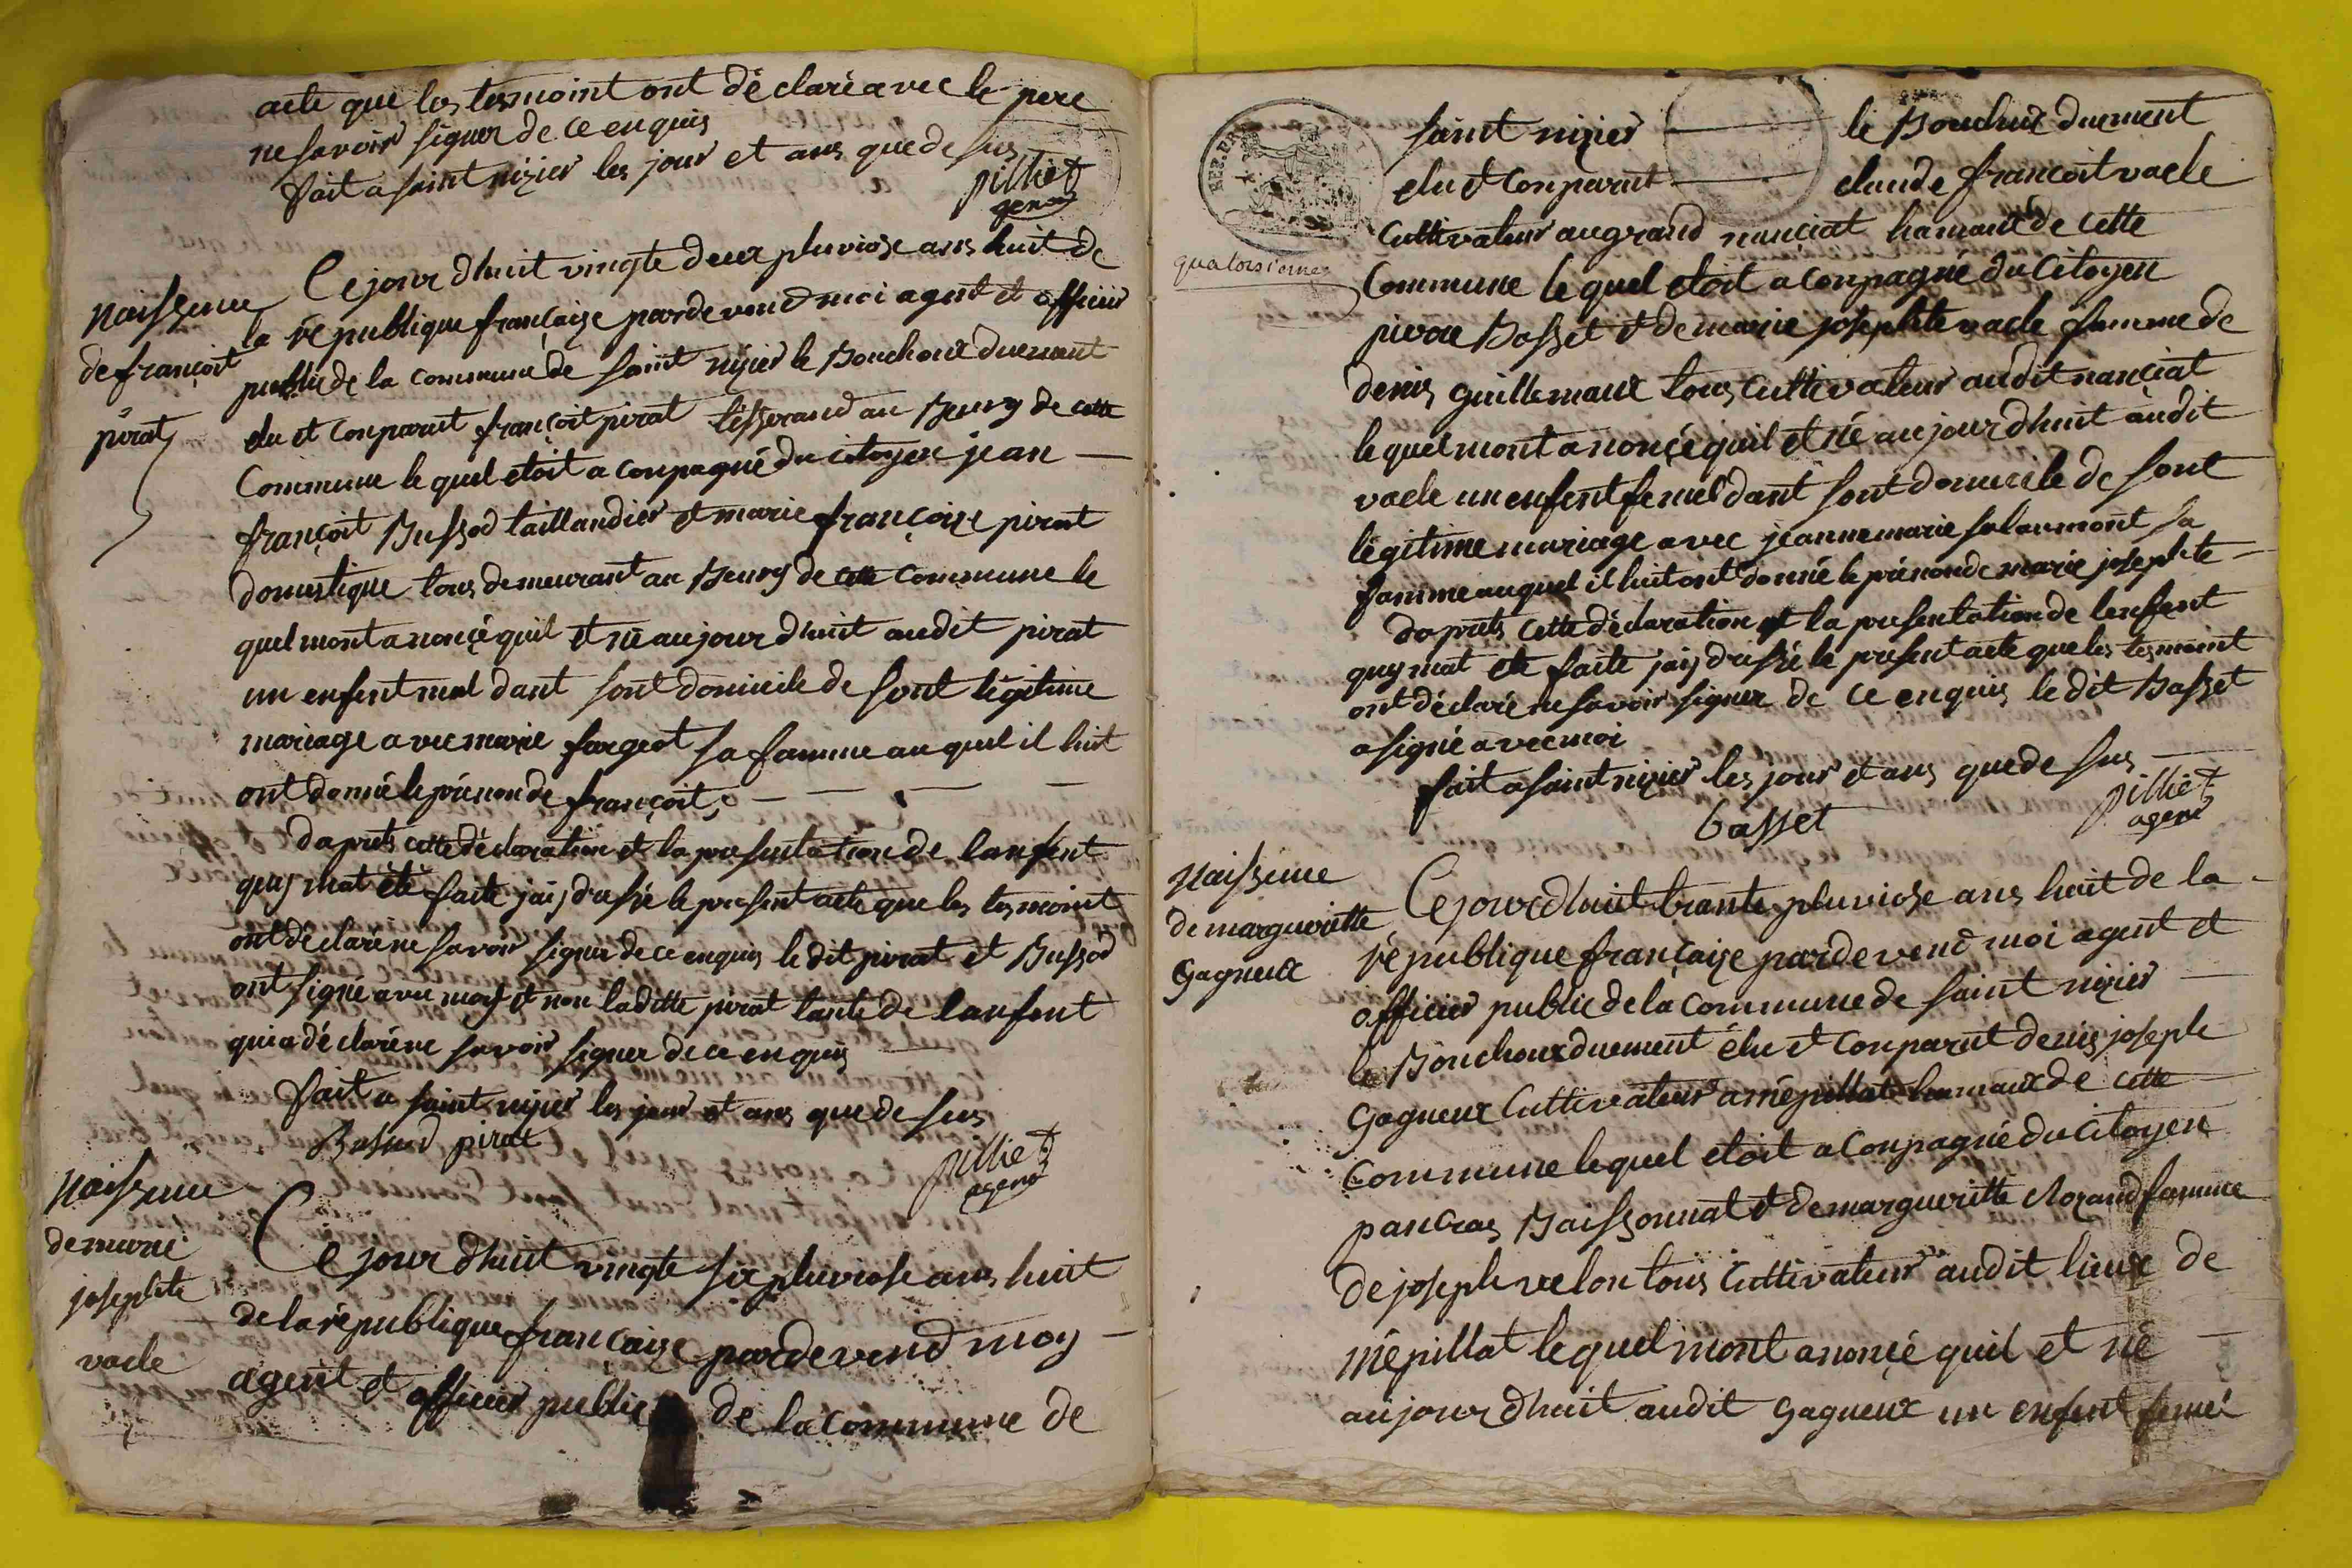 acte que les tesmoint ont déclaré avec le pere
ne savoir signer de ce enquis
fait a saint nizier les jour et ans que de sus
pilliet
agent
Naissence
de françoit
pirat
Ce jour dhuit vingte deux pluviose ans huit de
la république française pardevend moi agent et officier
public de la commune de saint nizier le Bouchoux duement
elu et conparut françoit pirat tisserand au Bourg de cette
Commune le quel etoit a conpagné du citoyen jean
françoit Bussod taillandier et marie françoise pirat
domestique tous demeurant au Bourg de cette commune le
quel mont anonçé quil et né aujour dhuit audit pirat
un enfent mal dant sont domicile de sont légitime
mariage avec marie fargeot sa famme au quel il luit
ont donné le prénon de françoit
daprets cette déclaration et la presentation de lanfent
quy mat été faite jaij dressé le present acte que les tesmoint
ont déclaré ne savoir signer de ce enquis le dit pirat et Bussod
ont signé avec moy et non laditte pirat tante de lanfent
qui a déclaré ne savoir signer de ce enquis
fait a saint nizier les jour et ans que de sus
Bussod pirat
pilliet
agent
Naissence
de marie
josephte
vacle
Ce jour dhuit vingte six pluviose ans huit
de la république française pardevend moy
agent et officier public de la commune de
saint nizier le Bouchux duement
elu et conparut claude françoit vacle
quatorsiemes
Cultivateur au grand nançiat hamaut de cette
Commune le quel etoit a conpagné du Citoyen
pierre Basset et de marie josephte vacle famme de
denis guillemaux tous cultivateur audit nançiat
le quel mont anonçé quil et né aujour dhuit audit
vacle un enfent femel dant sont domicile de sont
légitime mariage avec jeanne marie salaumont sa
famme auquel il luit ont donné le prénon de marie josephte
daprets cette déclaration et la presentation de lenfent
quy mat été faite jaij dressé le present acte que les tesmoint
ont déclaré ne savoir signer de ce enquis le dit Basset
a signé avec moi
fait a saint nizier les jour et ans que de sus
basset
pilliet
agent
Naissence
de margueritte
Gagneux
Ce jour dhuit trante pluviose ans huit de la
république française pardevend moi agent et
officier public de la Commune de saint nizier
le Bouchoux duement élu et conparut denis joseph
Gagneux Cultivateur a mépillat hamaux de cette
Commune lequel etoit a Conpagné du Citoyen
pancras Baissonnat et de margueritte Morand famme
de joseph velon tous Cultivateur audit lieux de
mépillat lequel mont anonçé quil et né
aujour dhuit audit Gagneux un enfent femel